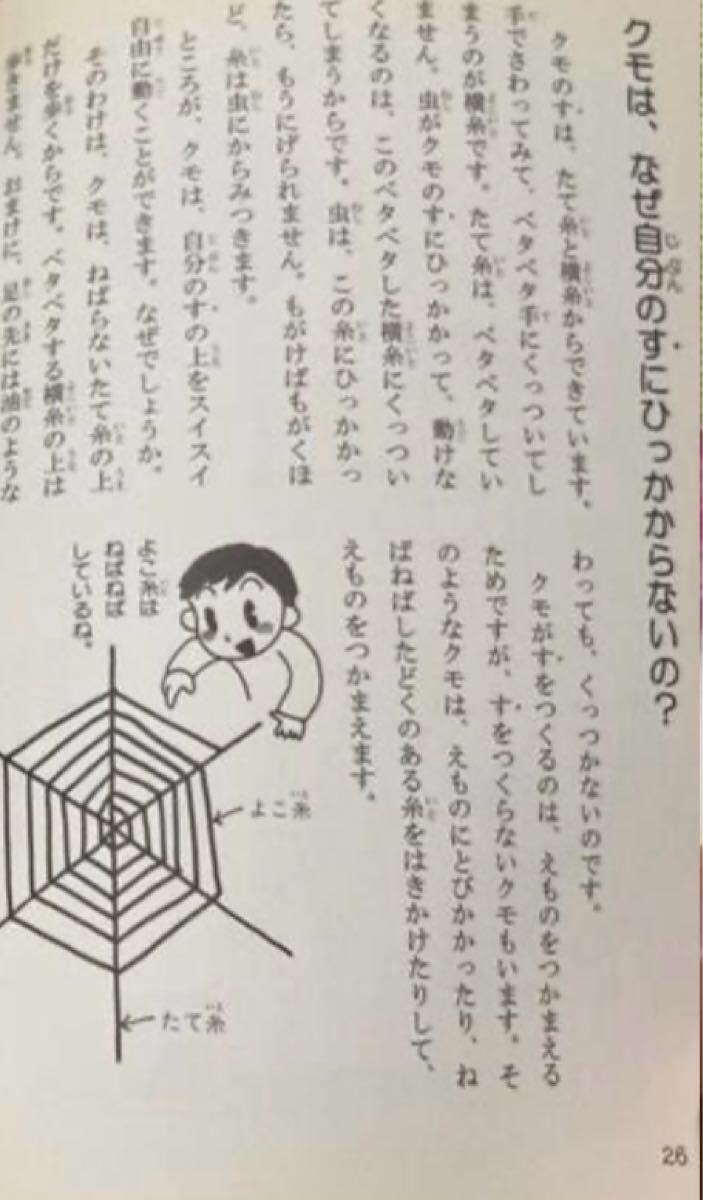 クモは、なぜ自分のすにひっかからないの？
クモのすは、たて糸と横糸からできています。
手でさわってみて、ベタベタ手にくっついてし
まうのが横糸です。たて糸は、ベタベタしてい
ません。虫がクモのすにひっかかって、動けな
くなるのは、このベタベタした横糸にくっつい
てしまうからです。虫は、この糸にひっかかっ
たら、もうにげられません。もがけばもがくほ
ど、糸は虫にからみつきます。
ところが、クモは、自分のすの上をスイスイ
自由に動くことができます。なぜでしょうか。
そのわけは、クモは、ねばらないたて糸の上
だけを歩くからです。ベタベタする横糸の上は
歩きません。おまけに、足の先には油のような
わっても、くっつかないのです。
クモがすをつくるのは、えものをつかまえる
ためですが、すをつくらないクモもいます。そ
のようなクモは、えものにとびかかったり、ね
ばねばしたどくのある糸をはきかけたりして、
えものをつかまえます。
よこ糸は
ねばねば
しているね。
よこ糸
たて糸
26